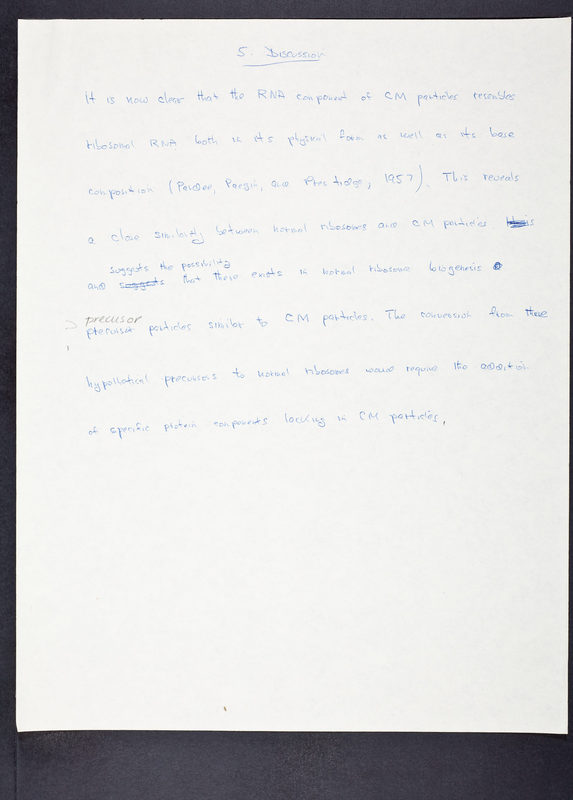 5. Discussion
It is now clear that the RNA component of CM particles resembles
ribosomal RNA both in its physical form as well as its base
composition (Pardee, Paigin, and Prestidge, 1957). This reveals
a close similarity between normal ribosomes and CM particles
suggests the possibility
and suggests that there exists in normal ribosome biogenesis a
precusor
precursor particles similar to CM particles. The conversion from these
hypothetical precursors to normal ribosomes would require the addition
of specific protein components lacking in CM particles.